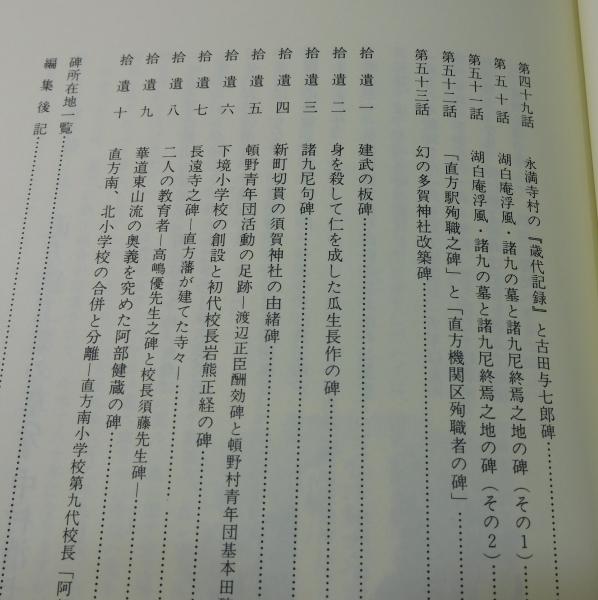 第四十九話 永満寺村の『歳代記録』と古田与七郎碑
第五十話 湖白庵浮風・諸九の墓と諸九尼終焉之地の碑(その1)
第五十一話 湖白庵浮風・諸九の墓と諸九尼終焉之地の碑(その2)
第五十二話 「直方駅殉職之碑」と「直方機関区殉職者の碑」
第五十三話 幻の多賀神社改築碑
拾遺一 建武の板碑
拾遺二 身を殺して仁を成した瓜生長作の碑
拾遺三 諸九尼句碑
拾遺四 新町切貫の須賀神社の由緒碑
拾遺五 頓野青年団活動の足跡―渡辺正臣酬効碑と頓野村青年団基本田
拾遺六 下境小学校の創設と初代校長岩熊正経の碑
拾遺七 長遠寺之碑―直方藩が建てた寺々―
拾遺八 二人の教育者―高嶋優先生之碑と校長須藤先生碑―
拾遺九 華道東山流の奥義を究めた阿部健蔵の碑
拾遺十 直方南、北小学校の合併と分離―直方南小学校第九代校長「阿
碑所在地一覧
編集後記